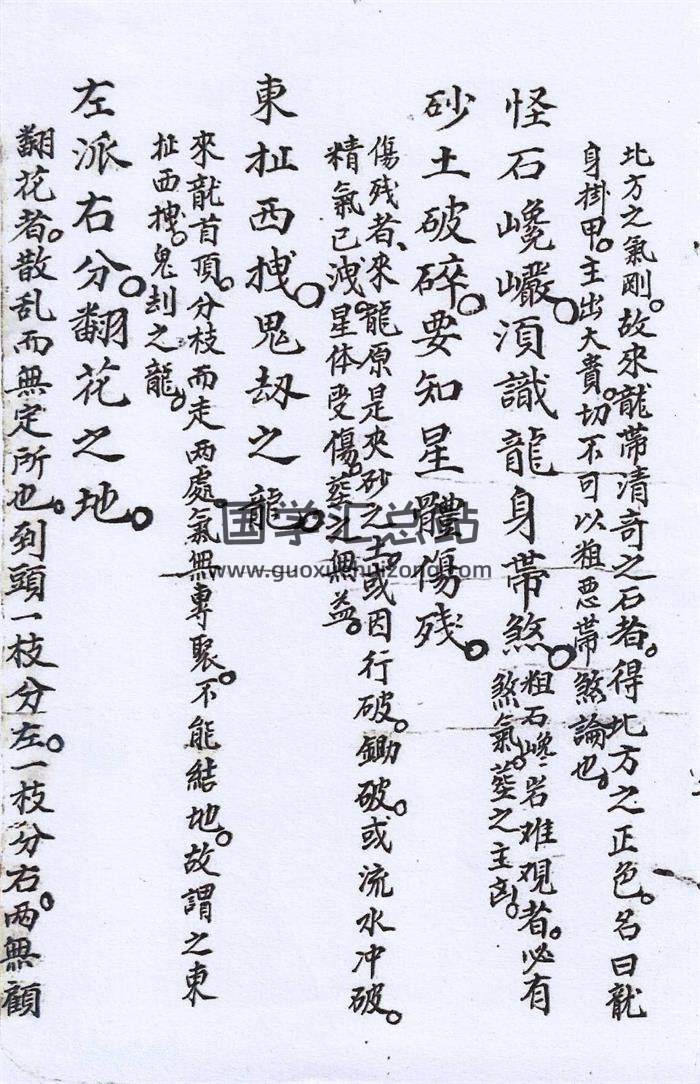 北方之氣剛。故來龍帶清奇之石者。得北方之正色。名曰龍
身掛甲。主出大貴。切不可以粗恶帶煞論也。
怪石巉巖。須識龍身帶煞。
粗石巉巉岩难覌者。必有
煞氣。塟之主凶。
砂土破碎。要知星體傷残。
傷残者、來龍原是夹砂之土。或因行破。鋤破。或流水冲破。
精氣已洩。星体受傷。塟之無益。
東扯西拽。鬼刼之龍。
來龍首頂。分枝而走两處。氣無專聚。不能結地。故謂之東
扯西拽。鬼刦之龍。
左派右分。翻花之地。
翻花者。散乱而無定所也。到頭一枝分左。一枝分右。两無顧
国学汇总站
www.guoxuehuizong.com